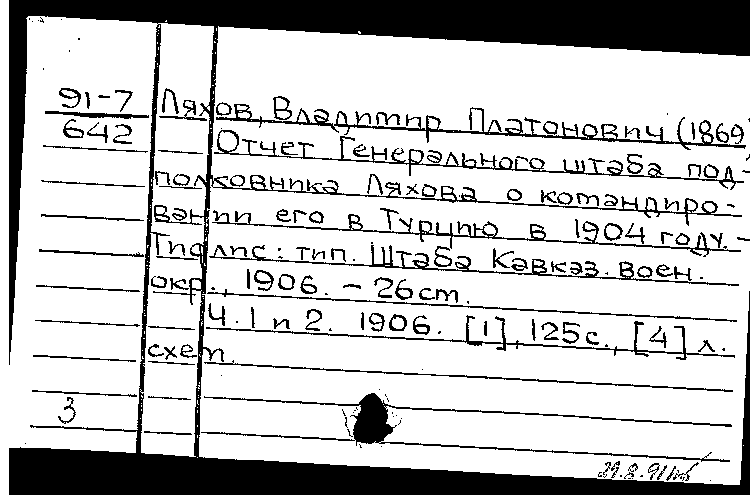 91-7
642
Ляхов, Владимир Платонович (1869
Отчет Генерального штаба под-
полковника Ляхова о командиро-
вании его в Турцию в 1904 году. -
Тифлис: тип. Штаба Кавказ. воен.
окр., 1906. - 26 см.
Ч. 1 и 2. 1906. [1], 125 с., [4] л.
схем.
3
29.8.91